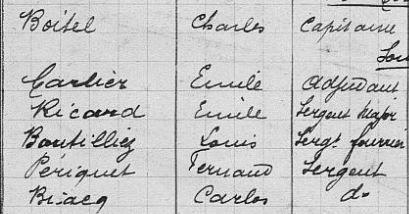 Boitel Charles Capitaine
Carlier Emile Adjudant
Ricard Emile Sergent Major
Boutilliez Louis Sergt fourrier
Périquet Fernand Sergent
Carlos do